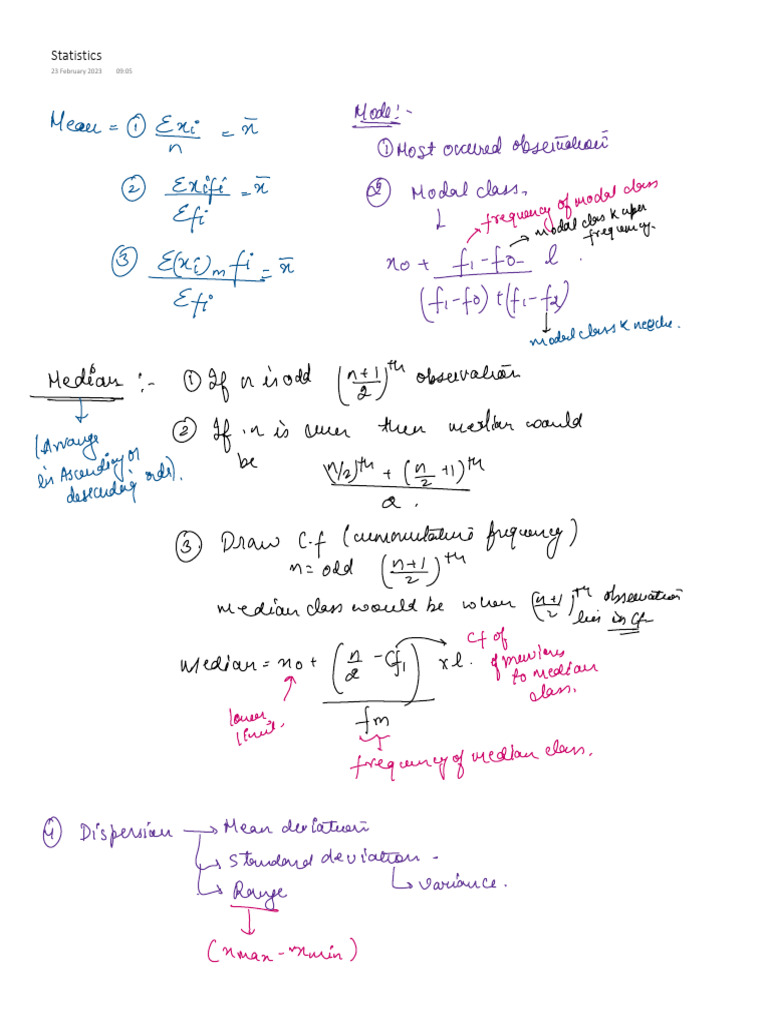 Statistics
23 February 2023 09:05
Mean = ① Σxi / n = x̄
② Σxifi / Σfi = x̄
③ Σ(xi)m fi / Σfi = x̄
Mode:-
① Most occured observation
② Modal class.
↓
frequency of modal class
modal class k uper
frequency.
x0 + (f1-f0) / ((f1-f0) + (f1-f2)) l
modal class k neeche.
Median :-
(Arrange
in Ascending or
descending order).
① If n is odd ((n+1)/2)th observation
② If n is even then median would
be
((n/2)th + (n/2 +1)th) / 2.
③ Draw C.f (cummulative frequency)
n = odd ((n+1)/2)th
median class would be when ((n+1)/2)th observation
lies in Cf
Median = x0 + ((n/2 - Cf1) / fm) x l.
Cf of
previous
to median
class.
lower
limit.
frequency of median class.
④ Dispersion → Mean deviation
↳ Standard deviation -
↳ variance.
↳ Range
↓
(xmax - xmin)